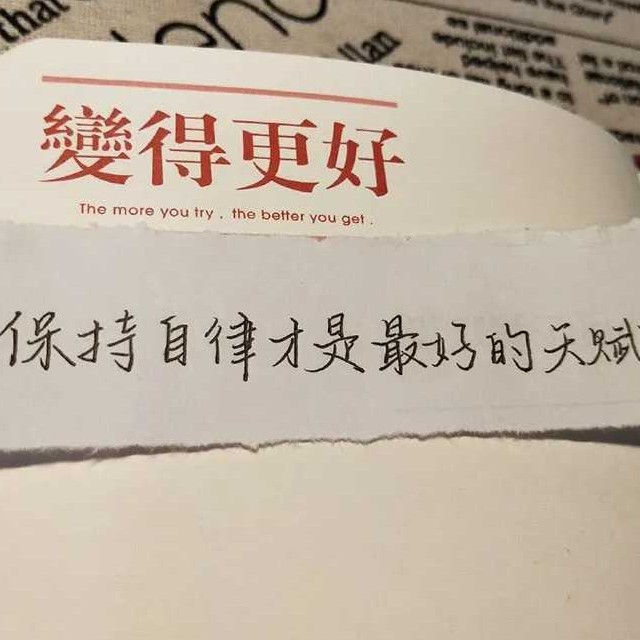 that
llan
變得更好
The more you try , the better you get .
保持自律才是最好的天赋